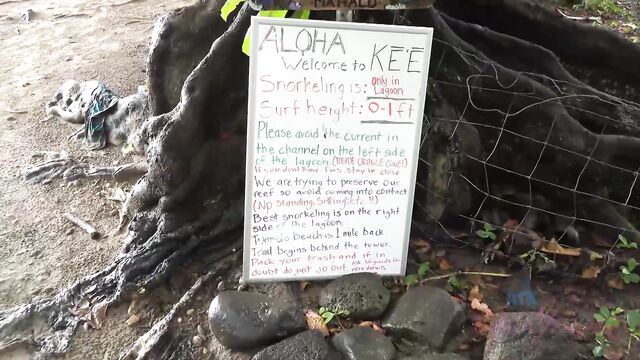 MAHALO
ALOHA
Welcome to KĒ'Ē
Snorkeling is: only in Lagoon
Surf height: 0-1 ft
Please avoid the current in
the channel on the left side
of the lagoon. (INSIDE ORANGE CONE!)
If you don't have fins stay in close
We are trying to preserve our
reef so avoid coming into contact
(No standing, sitting, etc. !!)
Best snorkeling is on the right
side of the lagoon
beach is 1 mile back
Trail begins behind the tower.
Pack your trash and if in
doubt do not go out